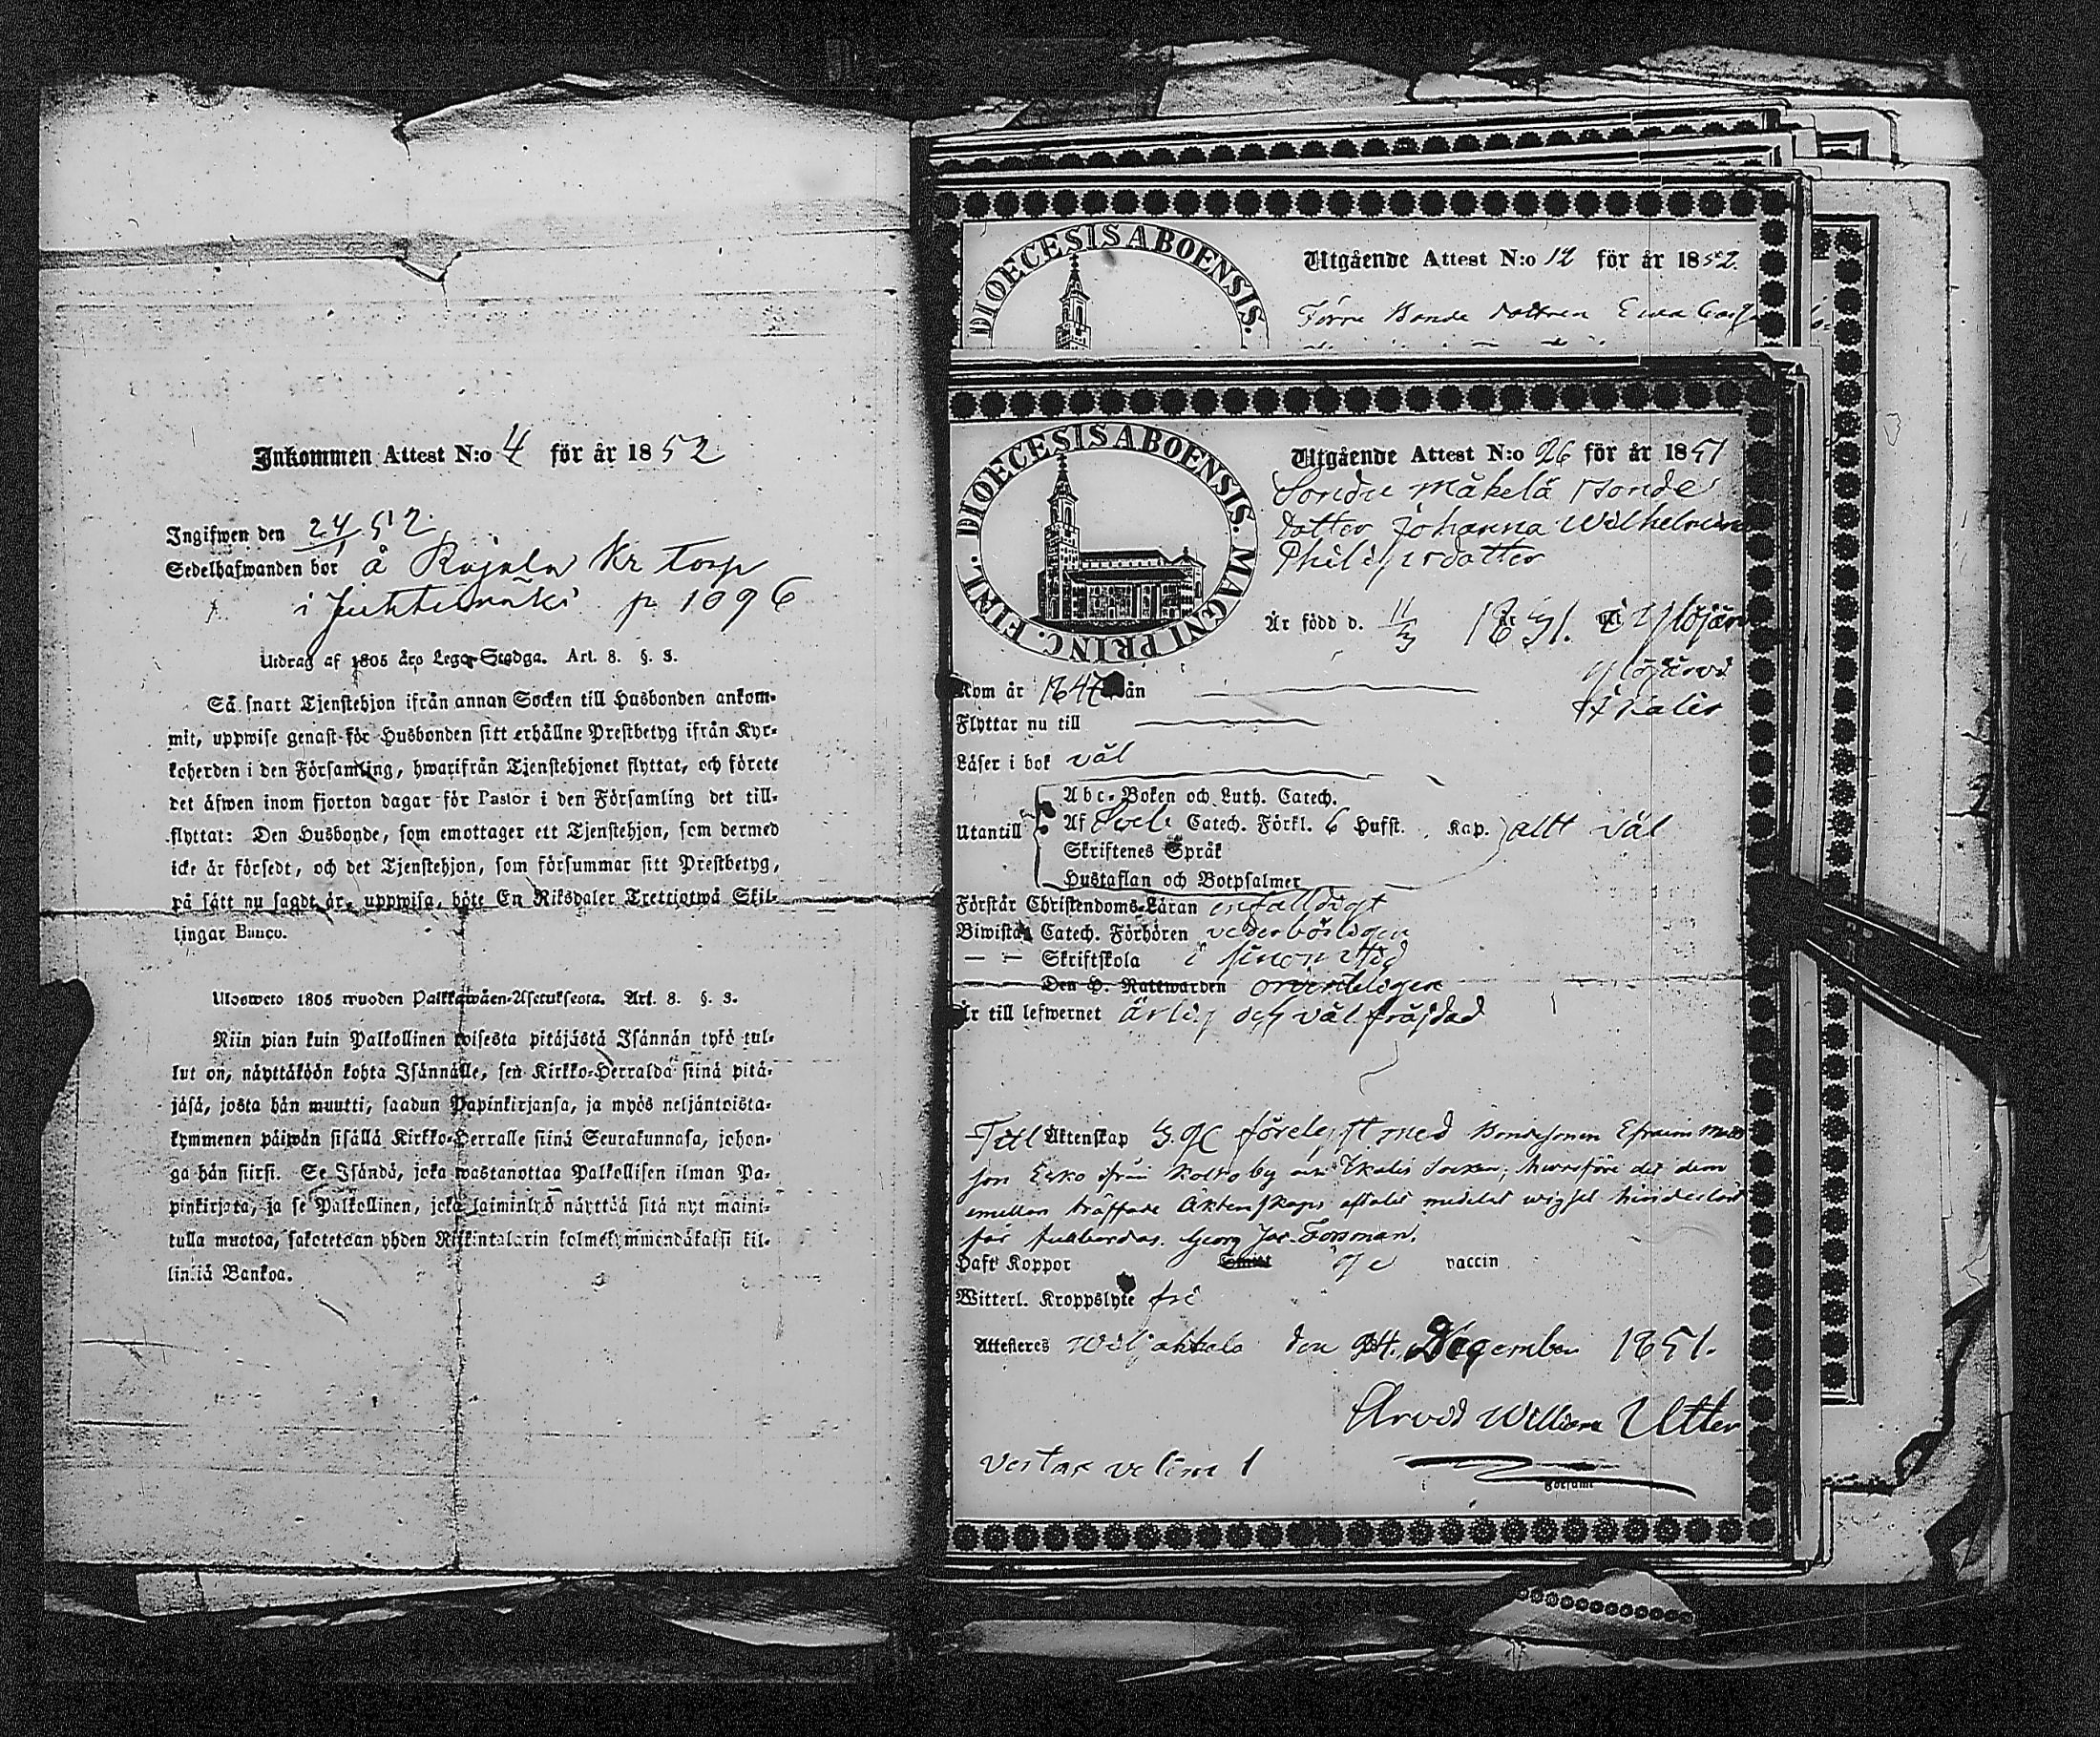 Inkommen Attest N:o 4 för år 1852
Ingifwen den 24/1 52.
Sedelhafwanden bor å Rajala Kr torp
i Juhtimäki p. 1096
Utdrag af 1805 års Lego-Stadga. Art. 8. §. 3.
Så snart Tjenstehjon ifrån annan Socken till Husbonden ankom-
mit, uppwise genast för Husbonden sitt erhållne Prestbetyg ifrån Kyr-
koherden i den Församling, hwarifrån Tjenstehjonet flyttat, och förete
det äfwen inom fjorton dagar för Pastor i den Församling det till-
flyttat: Den Husbonde, som emottager ett Tjenstehjon, som dermed
icke är försedt, och det Tjenstehjon, som försummar sitt Prestbetyg,
på sätt nu sagdt är, uppwisa, böte En Riksdaler Trettiotwå Skil-
lingar Banco.
Ulosweto 1805 wuoden Palkkawäen-Asetuksesta. Art. 8. §. 3.
Niin pian kuin Palkollinen toisesta pitäjästä Isännän tykö tul-
lut on, näyttäköön kohta Isännälle, sen Kirkko-Herralda siinä pitä-
jäsä, josta hän muutti, saadun Papinkirjansa, ja myös neljäntoista-
kymmenen päiwän sisällä Kirkko-Herralle siinä Seurakunnasa, johon-
ga hän siirsi. Se Isändä, joka wastanottaa Palkollisen ilman Pa-
pinkirjata, ja se Palkollinen, joka laiminlyö näyttää sitä nyt maini-
tulla muotoa, sakotetaan yhden Riikintalarin kolmekymmendäkaksi kil-
lingiä Bankoa.
DIOECESIS ABOENSIS.
Utgående Attest N:o 12 för år 1852.
Förre Bonde dottren Ewa
DIOECESIS ABOENSIS. MAGNI PRINC. FINL.
Utgående Attest N:o 26 för år 1851
Mäkelä Bonde
dotter Johanna Wilhelmina
Philipsdotter
Är född d. 11/3 1831. i Ylöjärvi
Ylöjärvi
Ikalis
Kom år 1847 från
Flyttar nu till
Läser i bok väl
Utantill
Abc-Boken och Luth. Catech.
Af Sveb. Catech. Förkl. 6 Hufst. Kap. allt väl
Skriftenes Språk
Hustaflan och Botpsalmer
Förstår Christendoms-Läran enfalldigt
Biwistat Catech. Förhören vederbörligen
— — Skriftskola i sinom tid
— — Den H. Nattwarden ordenteligen
Är till lefwernet ärlig och väl fräjdad
Till Äktenskap med Bondesonen Efraim
son Esko ifrån by och Ikalis Socken; hwarföre det dem
emellan träffade Äktenskaps aftalet medelst wigsel hinderlöst
får fullbordas. Georg Jac. Forsman.
Haft Koppor vaccin
Witterl. Kroppslyte fri
Attesteres Wiljakkala den 24. December 1851.
Arvid William Utter
1